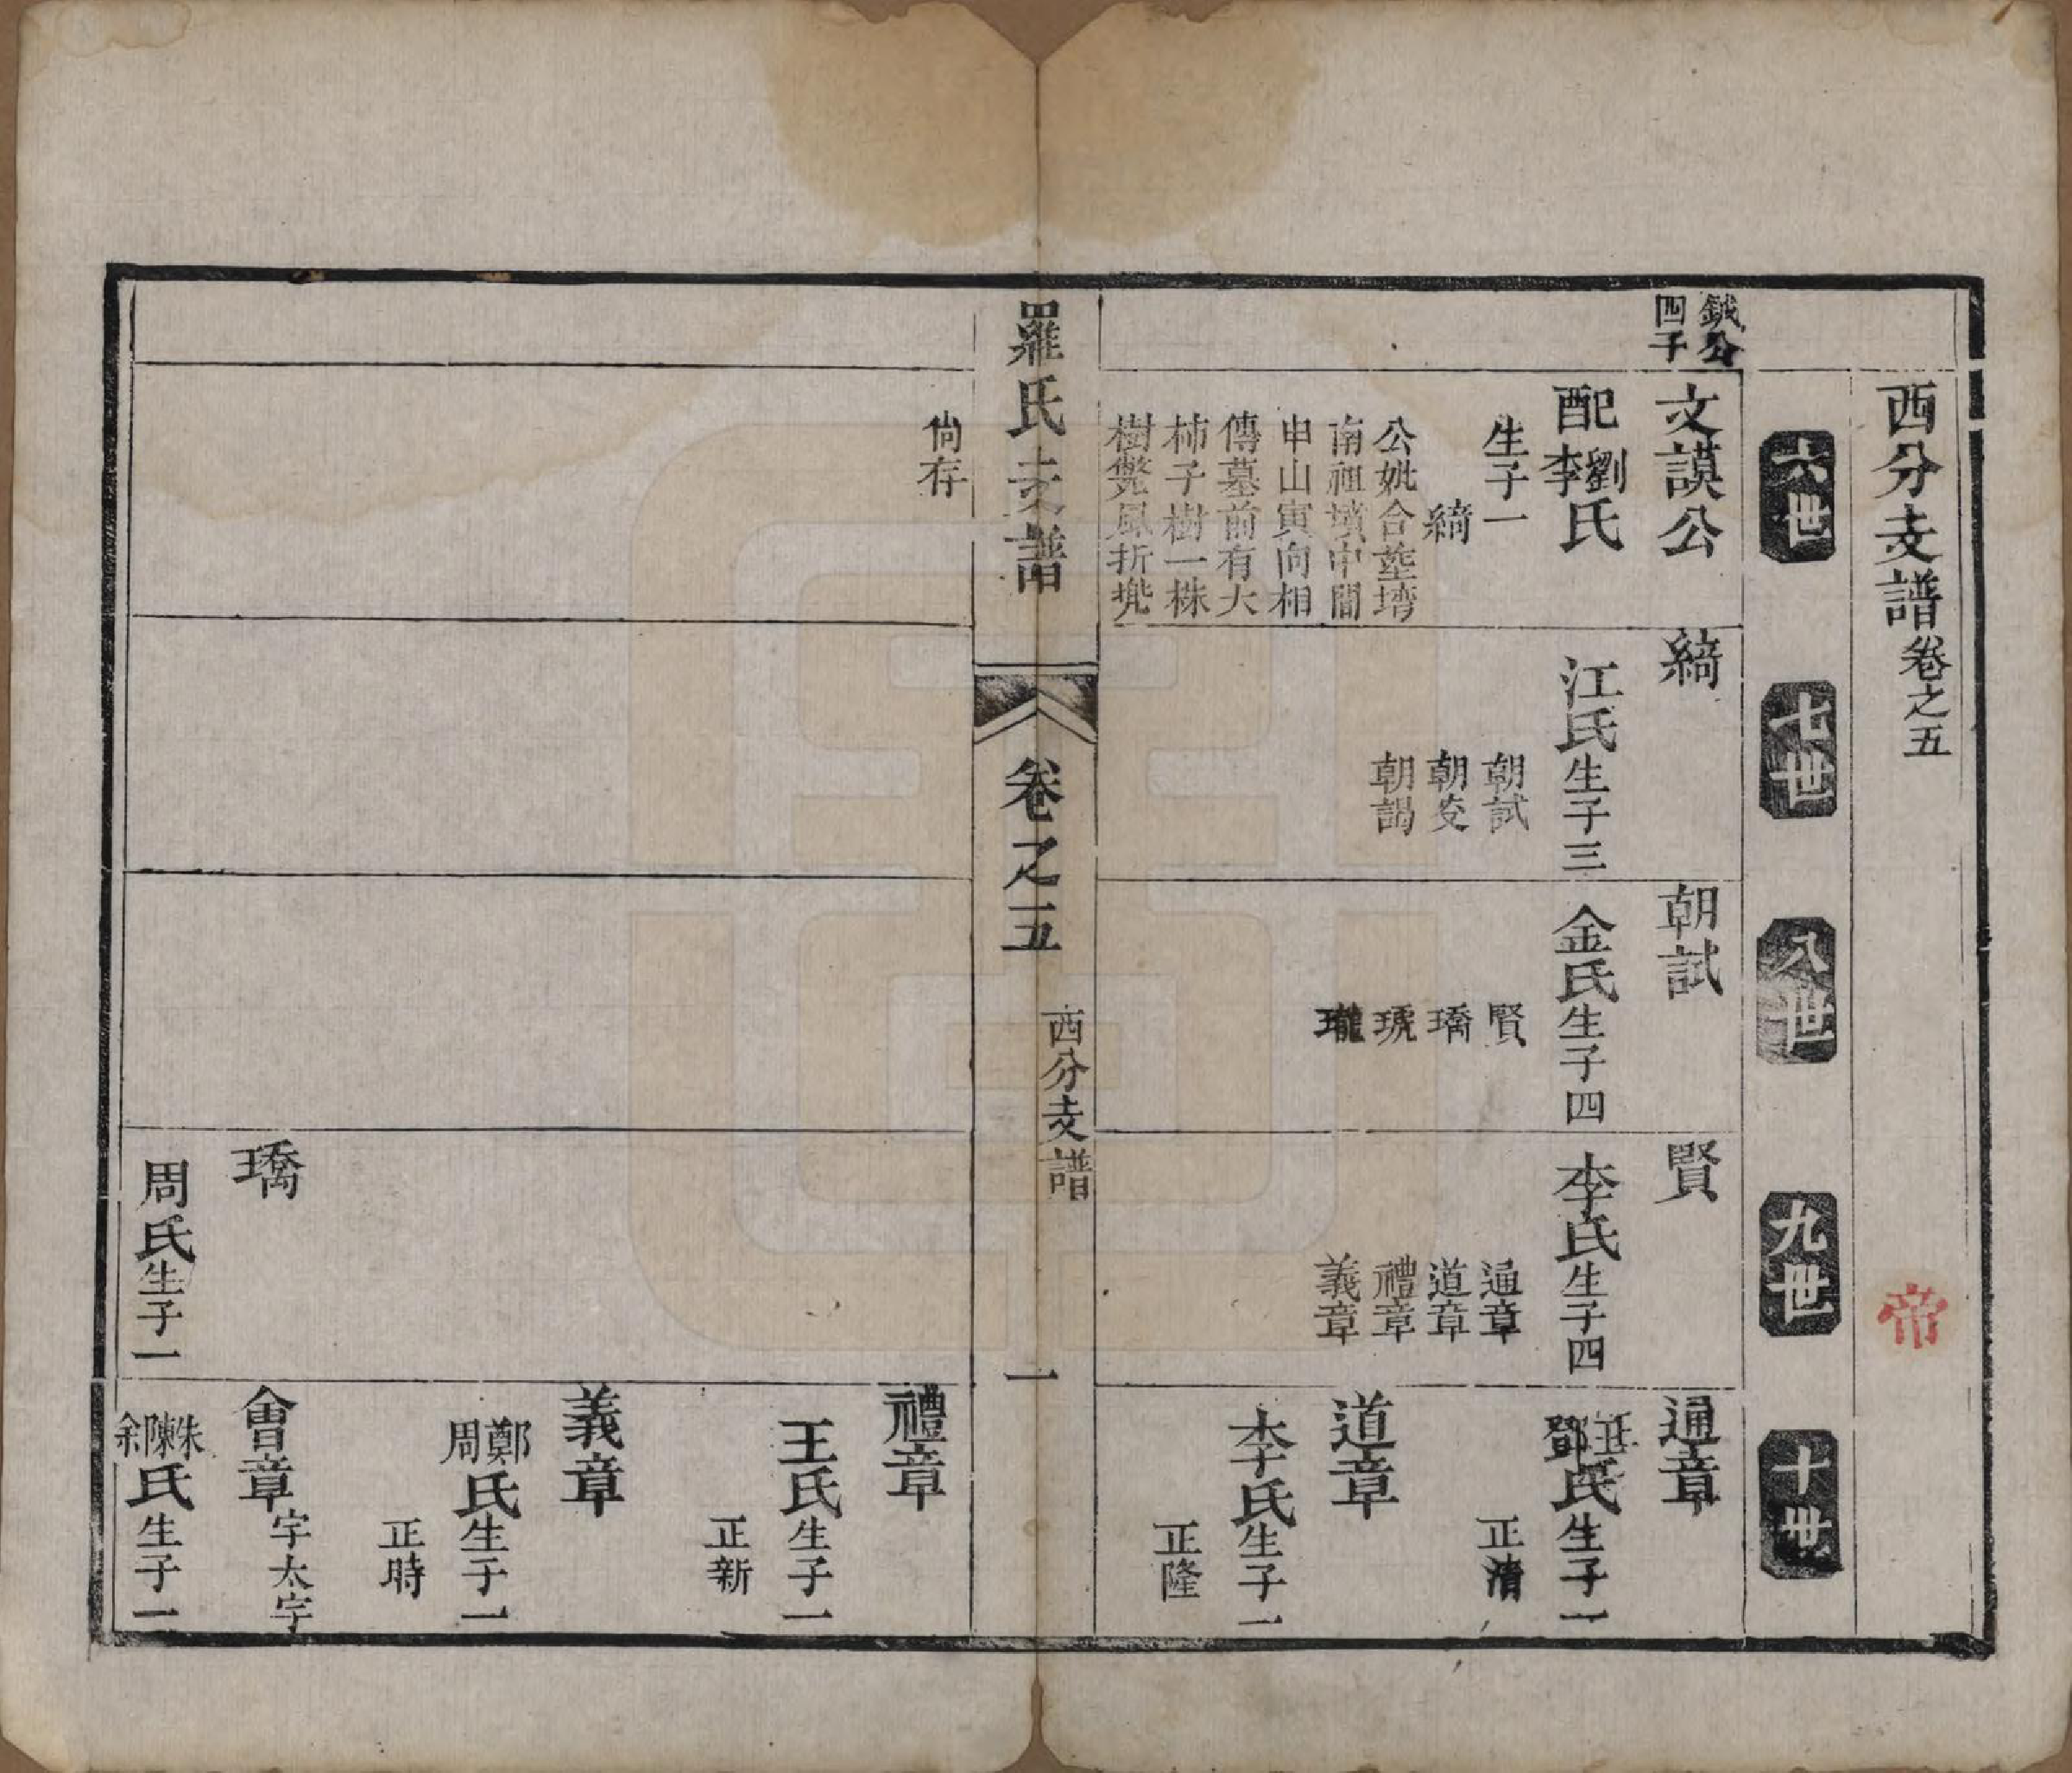 西分支譜卷之五
帝
六世
七世
八世
九世
十世
鉞公
四子
文謨公
配劉李氏
生子一
綺
公妣合塟塆
南祖墳中間
申山寅向相
傳墓前有大
柿子樹一株
樹斃風折兠
尙存
綺
江氏生子三
朝試
朝爻
朝謁
朝試
金氏生子四
賢
璚
琥
瓏
賢
李氏生子四
通章
道章
禮章
義章
璚
周氏生子一
通章
鄧氏生子一
正清
道章
李氏生子一
正隆
禮章
王氏生子一
正新
義章
鄭周氏生子一
正時
會章字太宇
朱陳余氏生子一
羅氏支譜
卷之五
西分支譜
一